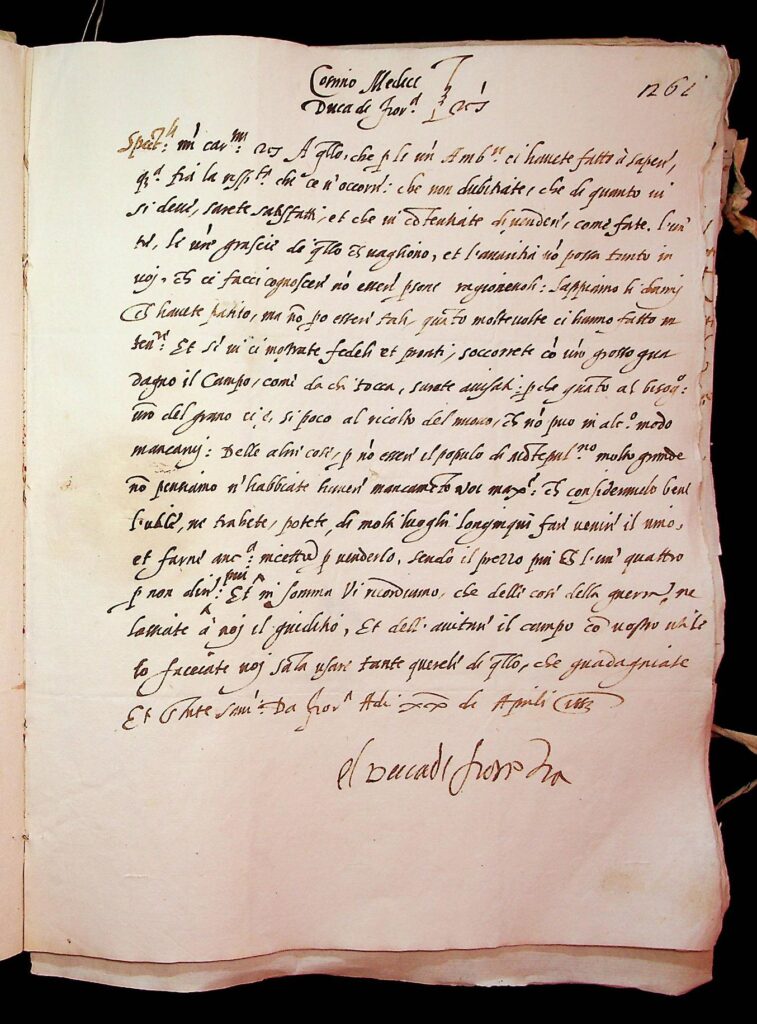 Cosmo Medici
Duca de Fior.ᵃ
1261
Spect.ˡⁱ mꝭ car.ᵐⁱ A q̃llo, che ꝑ le vr̃e Amb.ʳⁱ ci havete fatto à sapere,
fia la risp.ᵗᵃ che ce n'occorre: che non dubitiate, che di quanto vi
si deve, sarete satisfatti, et che vi cõtentiate di vendere, come fate.
le vr̃e grascie de q̃llo vagliono, et l'avaritia nõ possa tanto in
voj, ci facci cognoscere nõ essere ꝑsone ragionevoli: Sappiamo li danni
havete patito, ma nõ po essere tali, quãto moltevolte ci hanno fatto in
tend.ʳᵉ Et se vi ci mostrate fedeli et pronti, soccorrete cõ vr̃o grosso gua
dagno il Campo, come da chi tocca, sarete avisati: ꝑ che quãto al bisog.º
vr̃o del grano ci è, si poco al ricolto del nuovo, nõ puo in alc.º modo
mancarvj: Delle altre cose, ꝑ nõ essere il populo di Mõtepul.ⁿᵒ molto grande
nõ pensiamo n'habbiate havere mancamẽto voi max.ᵉ consideratelo bene
l'utile, ne trahete, potete, di molti luoghi longinqui fare venire il vino,
et farne anc.ª incetta ꝑ venderlo, sendo il prezzo piu l'un quattro
ꝑ non dire piu: Et in somma Vi ricordiamo, che delle cose della guerra, ne
lassiate à noj il giuditio, Et dell'avitare il campo cõ vostro utile
lo facciate voj sãza usare tante querele di q̃llo, che guadagniate
Et State sani: Da Fior.ᵃ Adi xxx de Aprile 1553
el Duca di fiorenza